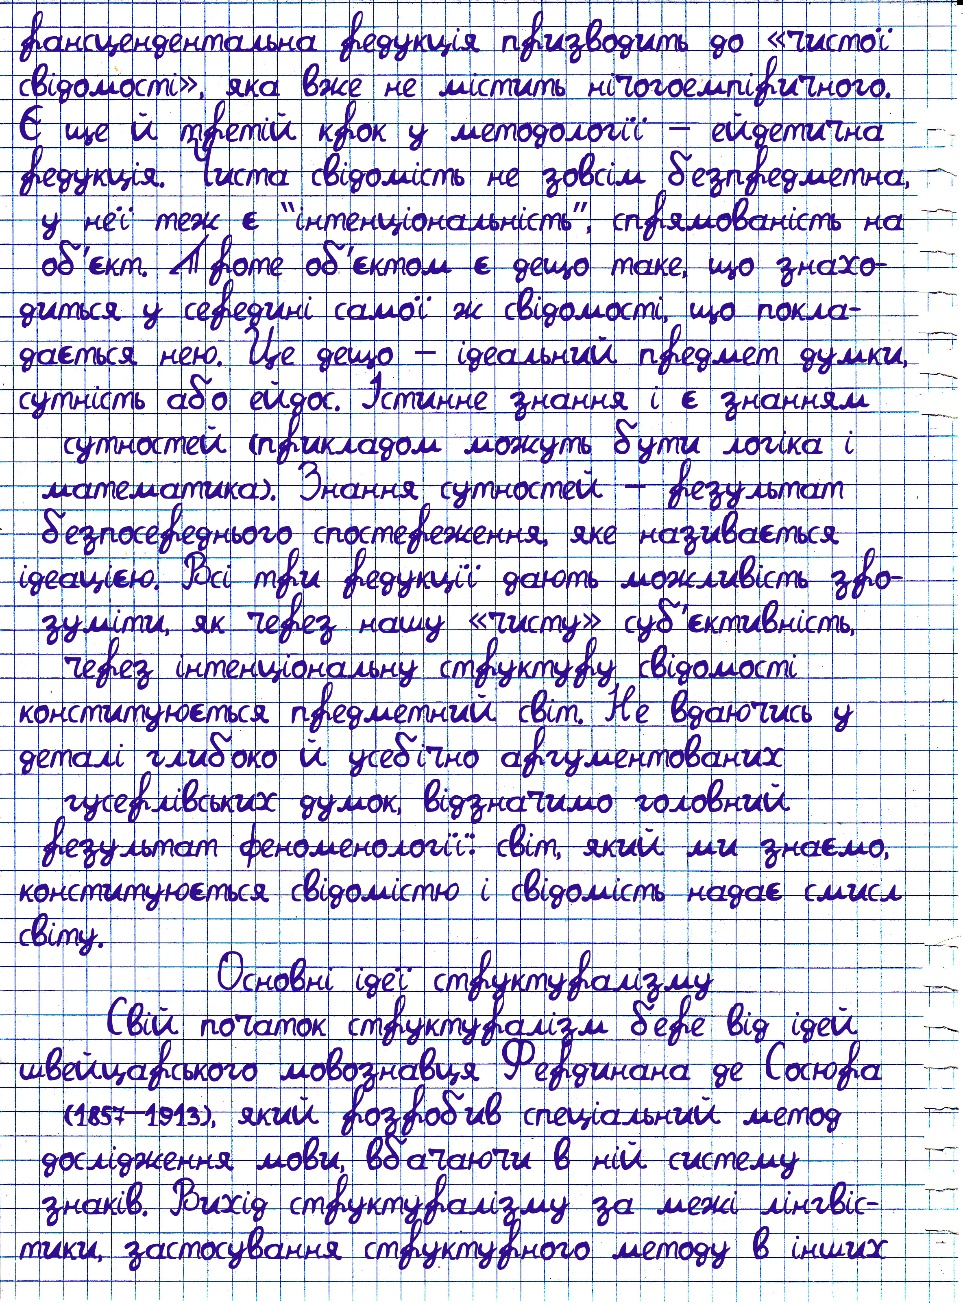 рансцендентальна редукція призводить до «чистої
свідомості», яка вже не містить нічогоемпіричного.
Є ще й третій крок у методології – ейдетична
редукція. Чиста свідомість не зовсім безпредметна,
у неї теж є "інтенціональність", спрямованість на
об'єкт. Проте об'єктом є дещо таке, що знахо-
диться у середині самої ж свідомості, що покла-
дається нею. Це дещо – ідеальний предмет думки,
сутність або ейдос. Істинне знання і є знанням
сутностей (прикладом можуть бути логіка і
математика). Знання сутностей – результат
безпосереднього спостереження, яке називається
ідеацією. Всі три редукції дають можливість зро-
зуміти, як через нашу «чисту» суб'єктивність,
через інтенціональну структуру свідомості
конституюється предметний світ. Не вдаючись у
деталі глибоко й усебічно аргументованих
гусерлівських думок, відзначимо головний
результат феноменології: світ, який ми знаємо,
конституюється свідомістю і свідомість надає смисл
світу.
Основні ідеї структуралізму
Свій початок структуралізм бере від ідей
швейцарського мовознавця Фердинана де Сосюра
(1857–1913), який розробив спеціальний метод
дослідження мови, вбачаючи в ній систему
знаків. Вихід структуралізму за межі лінгвіс-
тики, застосування структурного методу в інших